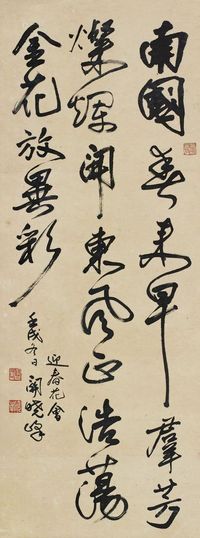 南國春來早羣芳
燦爛開東風正浩蕩
金花放異彩
迎春花會
壬戌冬日關曉峰